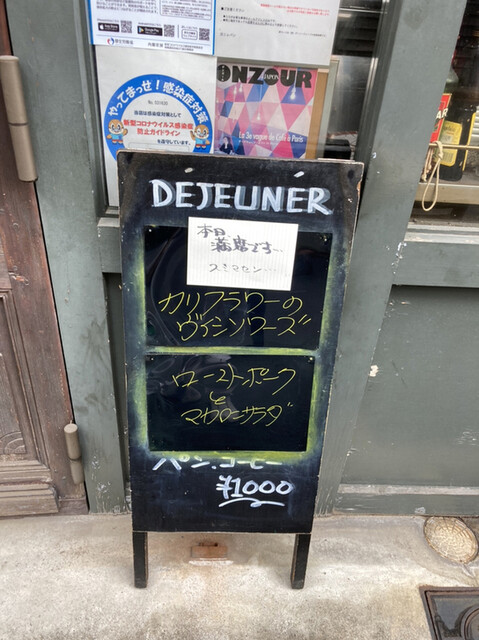 やってまっせ！感染症対策
当店は感染症対策として
新型コロナウイルス感染症
防止ガイドライン
を遵守しています。
BONZOUR
JAPON
La 3e vague de Café à Paris
DEJEUNER
本日
満席です…
スミマセン…
カリフラワーの
ヴィシソワーズ
ローストポーク
と
マカロニサラダ
パン、コーヒー
¥1000